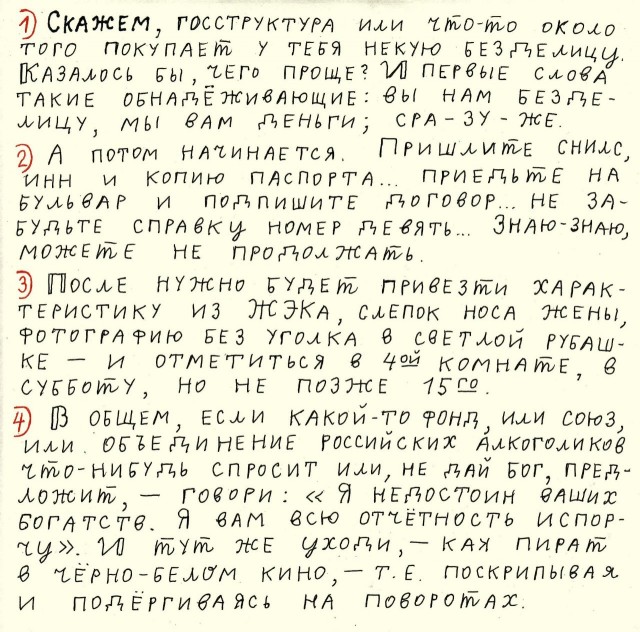 1) Скажем, госструктура или что-то около
того покупает у тебя некую безделицу.
Казалось бы, чего проще? И первые слова
такие обнадёживающие: вы нам безде-
лицу, мы вам деньги; сра-зу-же.
2) А потом начинается. Пришлите снилс,
инн и копию паспорта... приедьте на
бульвар и подпишите договор... не за-
будьте справку номер девять... Знаю-знаю,
можете не продолжать.
3) После нужно будет привезти харак-
теристику из ЖЭКа, слепок носа жены,
фотографию без уголка в светлой рубаш-
ке — и отметиться в 4ой комнате, в
субботу, но не позже 15го.
4) В общем, если какой-то фонд, или союз,
или объединение российских алкоголиков
что-нибудь спросит или, не дай бог, пред-
ложит, — говори: «Я недостоин ваших
богатств. Я вам всю отчётность испор-
чу». И тут же уходи, — как пират
в чёрно-белом кино, — т.е. поскрипывая
и подёргиваясь на поворотах.